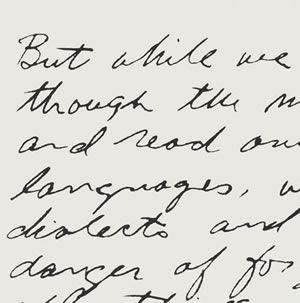 But while we
through the
and read
languages,
dialects and
danger of